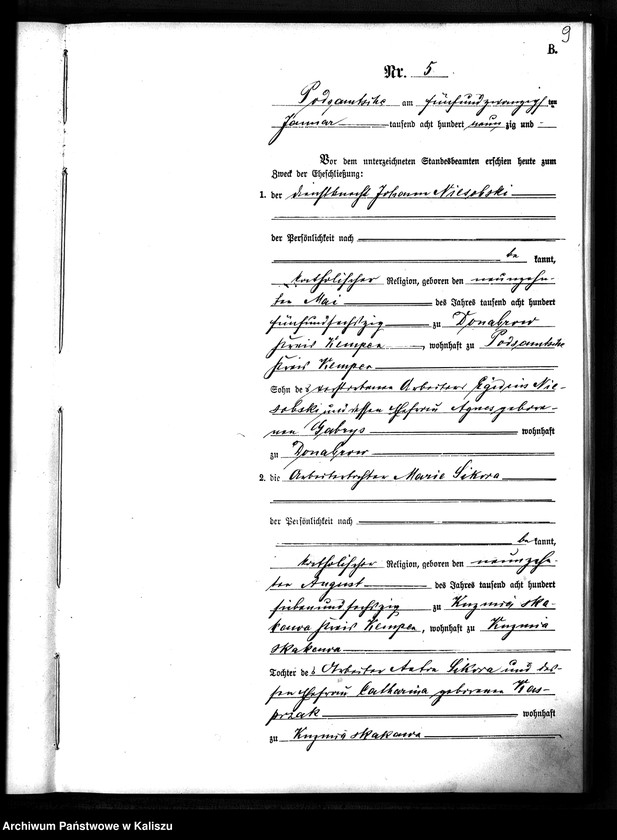 9
B.
Nr. 5
Podzamtsche am fünfundzwanzigsten
Januar tausend acht hundert neunzig und
Vor dem unterzeichneten Standesbeamten erschien heute zum
Zweck der Eheschließung:
1. der Dienstknecht Johann Niesobski
der Persönlichkeit nach
be kannt,
katholischer Religion, geboren den neunzehn-
ten Mai des Jahres tausend acht hundert
fünfundsechszig zu Donaborow
Kreis Kempen, wohnhaft zu Podzamtsche
Kreis Kempen
Sohn des verstorbenen Arbeiters Egidius Nie-
sobski und dessen Ehefrau Agnes gebore-
nen Gabrys wohnhaft
zu Donaborow
2. die Arbeitertochter Marie Sikora
der Persönlichkeit nach
be kannt,
katholischer Religion, geboren den neunzehn-
ten August des Jahres tausend acht hundert
siebenundsechszig zu Kuznica ska-
kawa Kreis Kempen, wohnhaft zu Kuznica
skakawa
Tochter des Arbeiter Sikora und des-
sen Ehefrau Catharina geborenen Kas-
przak wohnhaft
zu Kuznica skakawa
Archiwum Państwowe w Kaliszu